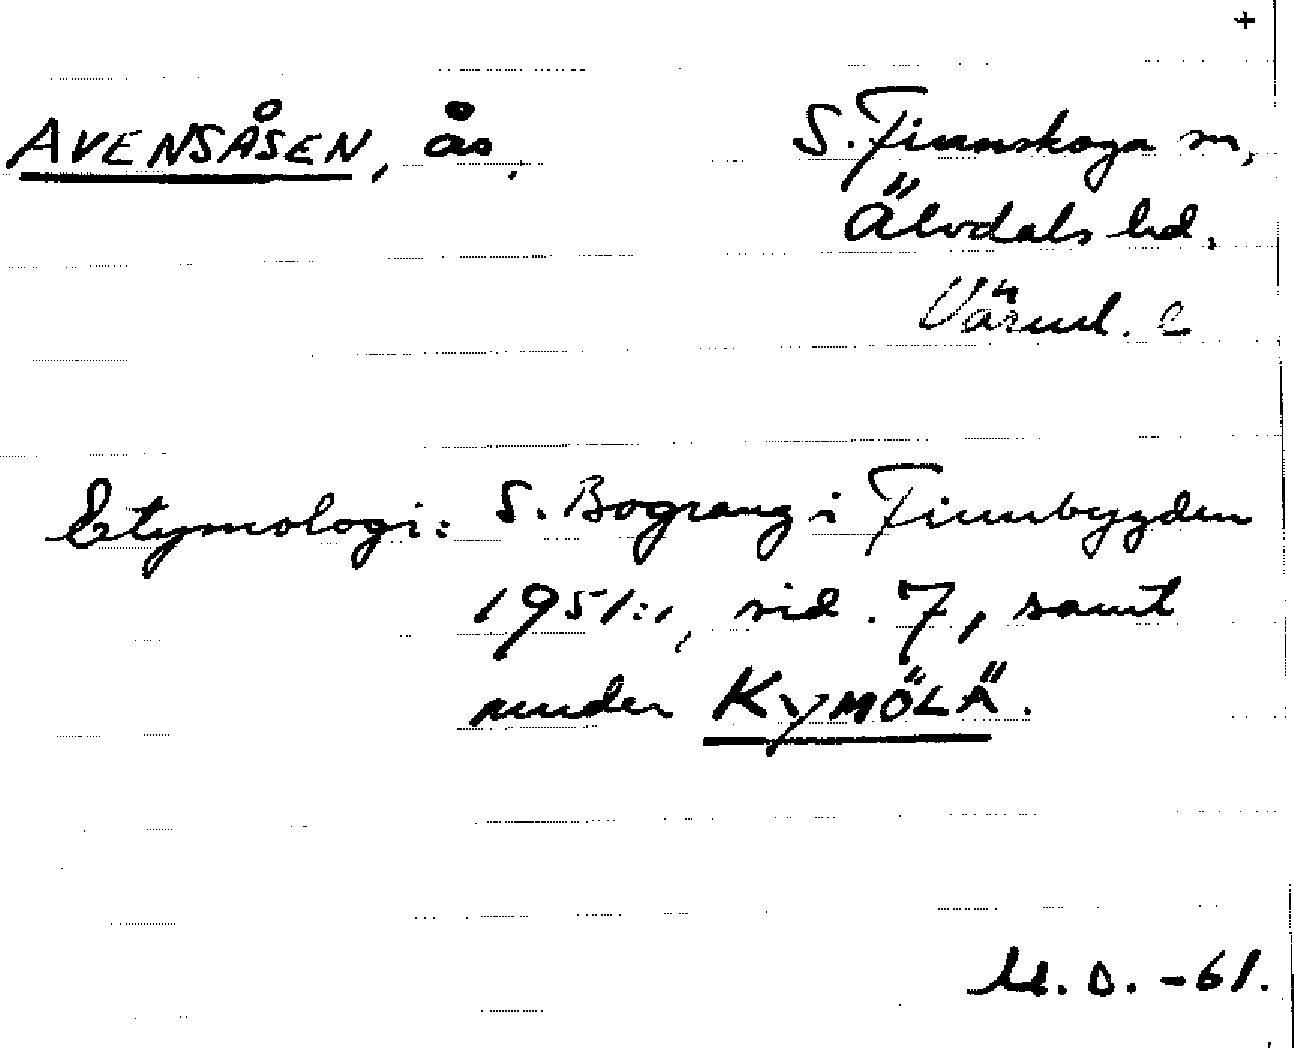 +
AVENSÅSEN, ås, S. Finnskoga sn,
Älvdals hd.
Värml. l
Etymologi: S. Bograng i Finnbygden
1951:1, sid. 7, samt
under KYMÖLÄ.
D. -61.